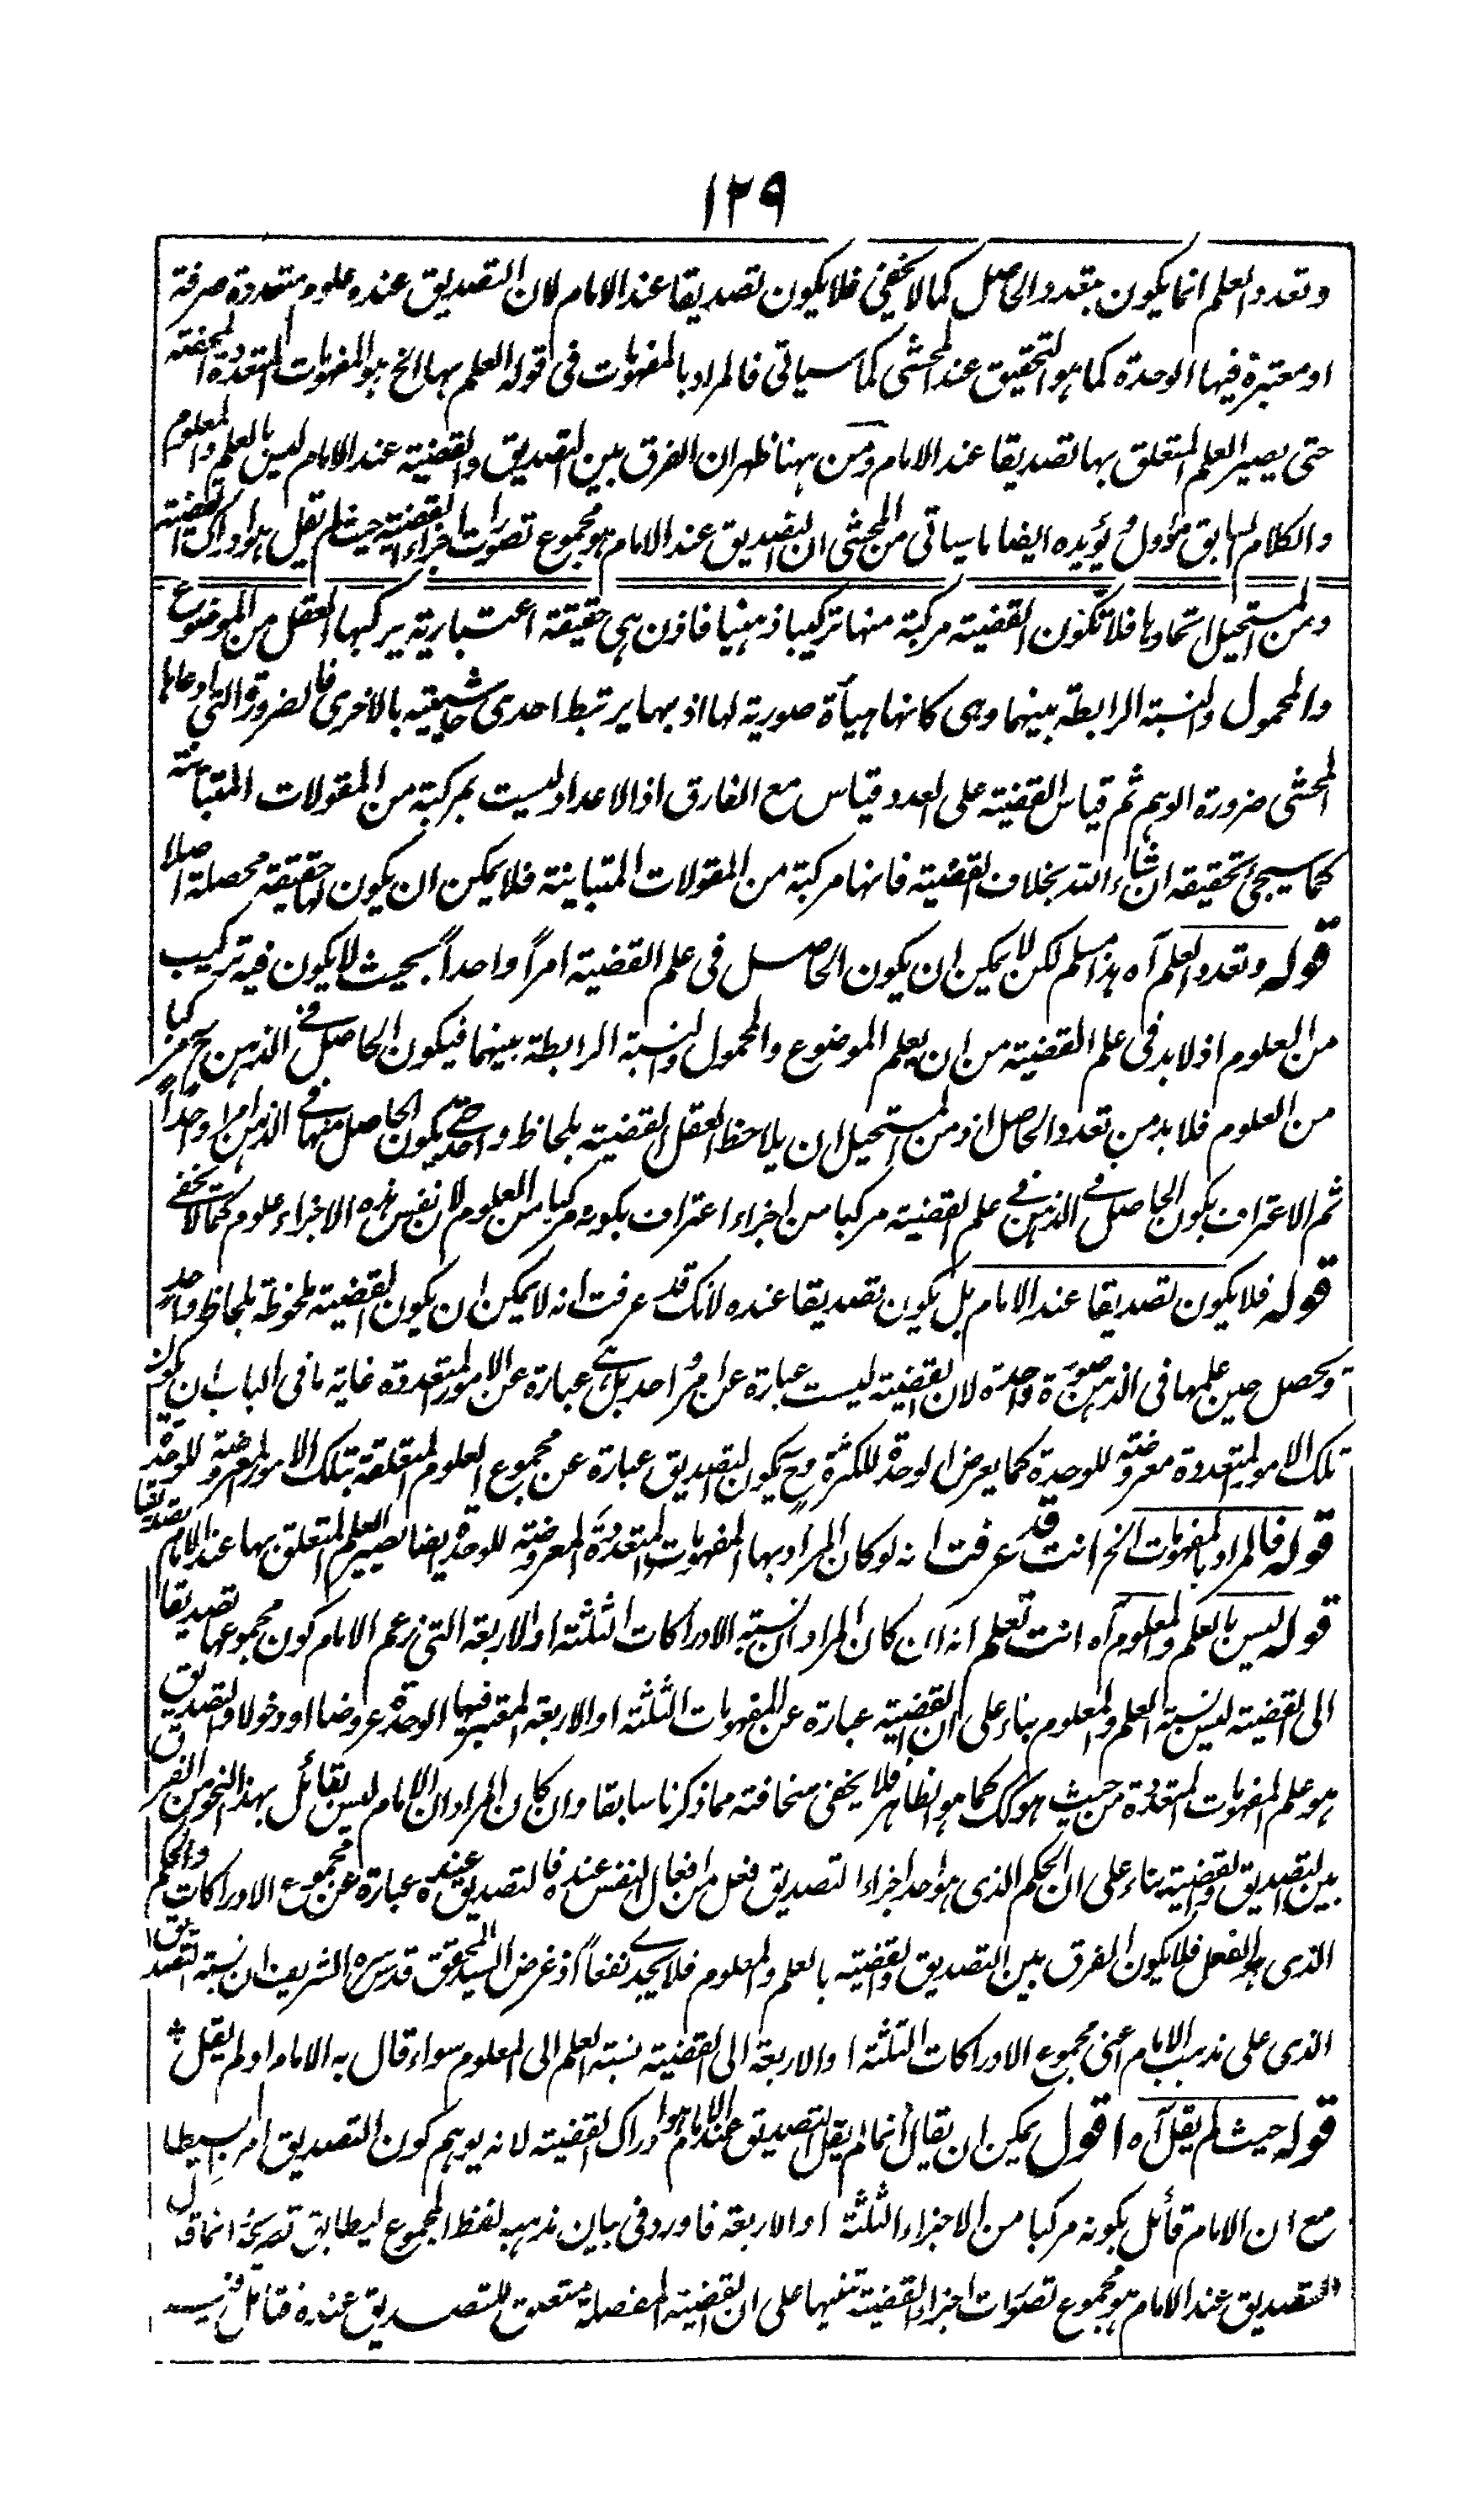 ١٢٩
وتعدد العلم انما يكون بتعدد الحاصل كما لا يخفى فلا يكون تصديقا عند الامام لان التصديق عنده علوم متعددة صرفة
او معتبرة فيها الوحدة كما هو التحقيق عند المحشى كما سياتى فالمراد بالمفهومات فى قوله العلم بها الخ هو المفهومات المتعددة المحضة
حتى يصير العلم المتعلق بها تصديقا عند الامام ومن ههنا ظهر ان الفرق بين التصديق والقضية عند الامام ليس بالعلم والمعلوم
والكلام السابق مؤول يؤيده ايضا ما سياتى من المحشى ان التصديق عند الامام هو مجموع تصورات اجزاء القضية حيث لم يقل هو ادراك القضية
ومن المستحيل اتحادها فلا تكون القضية مركبة منها تركيبا ذهنيا فاذن هى حقيقة اعتبارية يركبها العقل من الموضوع
والمحمول والنسبة الرابطة بينهما وهى كانها هيأة صورية لها اذ بهما يرتبط احدى حاشيتيه بالاخرى فالضرورة التى ادعاها
المحشى ضرورة الوهم ثم قياس القضية على العدد قياس مع الفارق اذ الاعداد ليست بمركبة من المقولات المتباينة
كما سيجئ تحقيقه ان شاء الله بخلاف القضية فانها مركبة من المقولات المتباينة فلا يمكن ان يكون لها حقيقة محصلة اصلا
قوله وتعدد العلم آه هذا مسلم لكن لا يمكن ان يكون الحاصل فى علم القضية امراً واحداً بحيث لا يكون فيه تركيب
من العلوم اذ لا بد فى علم القضية من ان يعلم الموضوع والمحمول والنسبة الرابطة بينهما فيكون الحاصل فى الذهن ح مركبا
من العلوم فلا بد من تعدد الحاصل اذ ومن المستحيل ان يلاحظ العقل القضية بلحاظ واحد حتى يكون الحاصل منها فى الذهن امرا واحداً
ثم الاعتراف بكون الحاصل فى الذهن فى علم القضية مركبا من اجزاء اعتراف بكونه مركبا من العلوم لان نفس هذه الاجزاء علوم كما لا يخفى
قوله فلا يكون تصديقا عند الامام بل يكون تصديقا عنده لانك قد عرفت انه لا يمكن ان يكون القضية ملحوظة بلحاظ واحد
ويحصل حين علمها فى الذهن صورة واحدة لان القضية ليست عبارة عن امر واحد بل هى عبارة عن الامور المتعددة غاية ما فى الباب ان يكون
تلك الامور المتعددة معروضة للوحدة كما يعرض الوحدة للكثرة وح يكون التصديق عبارة عن مجموع العلوم المتعلقة بتلك الامور المعروضة للوحدة
قوله فالمراد بالمفهومات الخ انت قد عرفت انه لو كان المراد بها المفهومات المتعددة المعروضة للوحدة ايضا يصير العلم المتعلق بها عند الامام تصديقا
قوله ليس بالعلم والمعلوم آه انت تعلم انه ان كان المراد ان نسبة الادراكات الثلثة او الاربعة التى زعم الامام كون مجموعها تصديقا
الى القضية ليس نسبة العلم والمعلوم بناء على ان القضية عبارة عن المفهومات الثلثة او الاربعة المعتبر فيها الوحدة عروضا او دخولا والتصديق
هو علم المفهومات المتعددة من حيث هو كك كما هو الظاهر فلا يخفى سخافته مما ذكرنا سابقا وان كان المراد ان الامام ليس بقائل بهذا النحو من الفرق
بين التصديق والقضية بناء على ان الحكم الذى هو احد اجزاء التصديق فعل من افعال النفس عنده فالتصديق عنده عبارة عن مجموع الادراكات والحكم
الذى هو الفعل فلا يكون الفرق بين التصديق والقضية بالعلم والمعلوم فلا يجدى نفعاً اذ غرض السيد المحقق قدس سره الشريف ان نسبة التصديق
الذى على مذهب الامام اعنى مجموع الادراكات الثلثة او الاربعة الى القضية نسبة العلم الى المعلوم سواء قال به الامام او لم يقل
قوله حيث لم يقل آه اقول يمكن ان يقال انما لم يقل التصديق عند الامام هو ادراك القضية لانه يوهم كون التصديق امرا بسيطا
مع ان الامام قائل بكونه مركبا من الاجزاء الثلثة او الاربعة فاورد فى بيان مذهبه لفظ المجموع ليطابق تصريحه انما قال
التصديق عند الامام هو مجموع تصورات اجزاء القضية تنبيها على ان القضية المفصلة متعلق للتصديق عنده فتأمل فيه